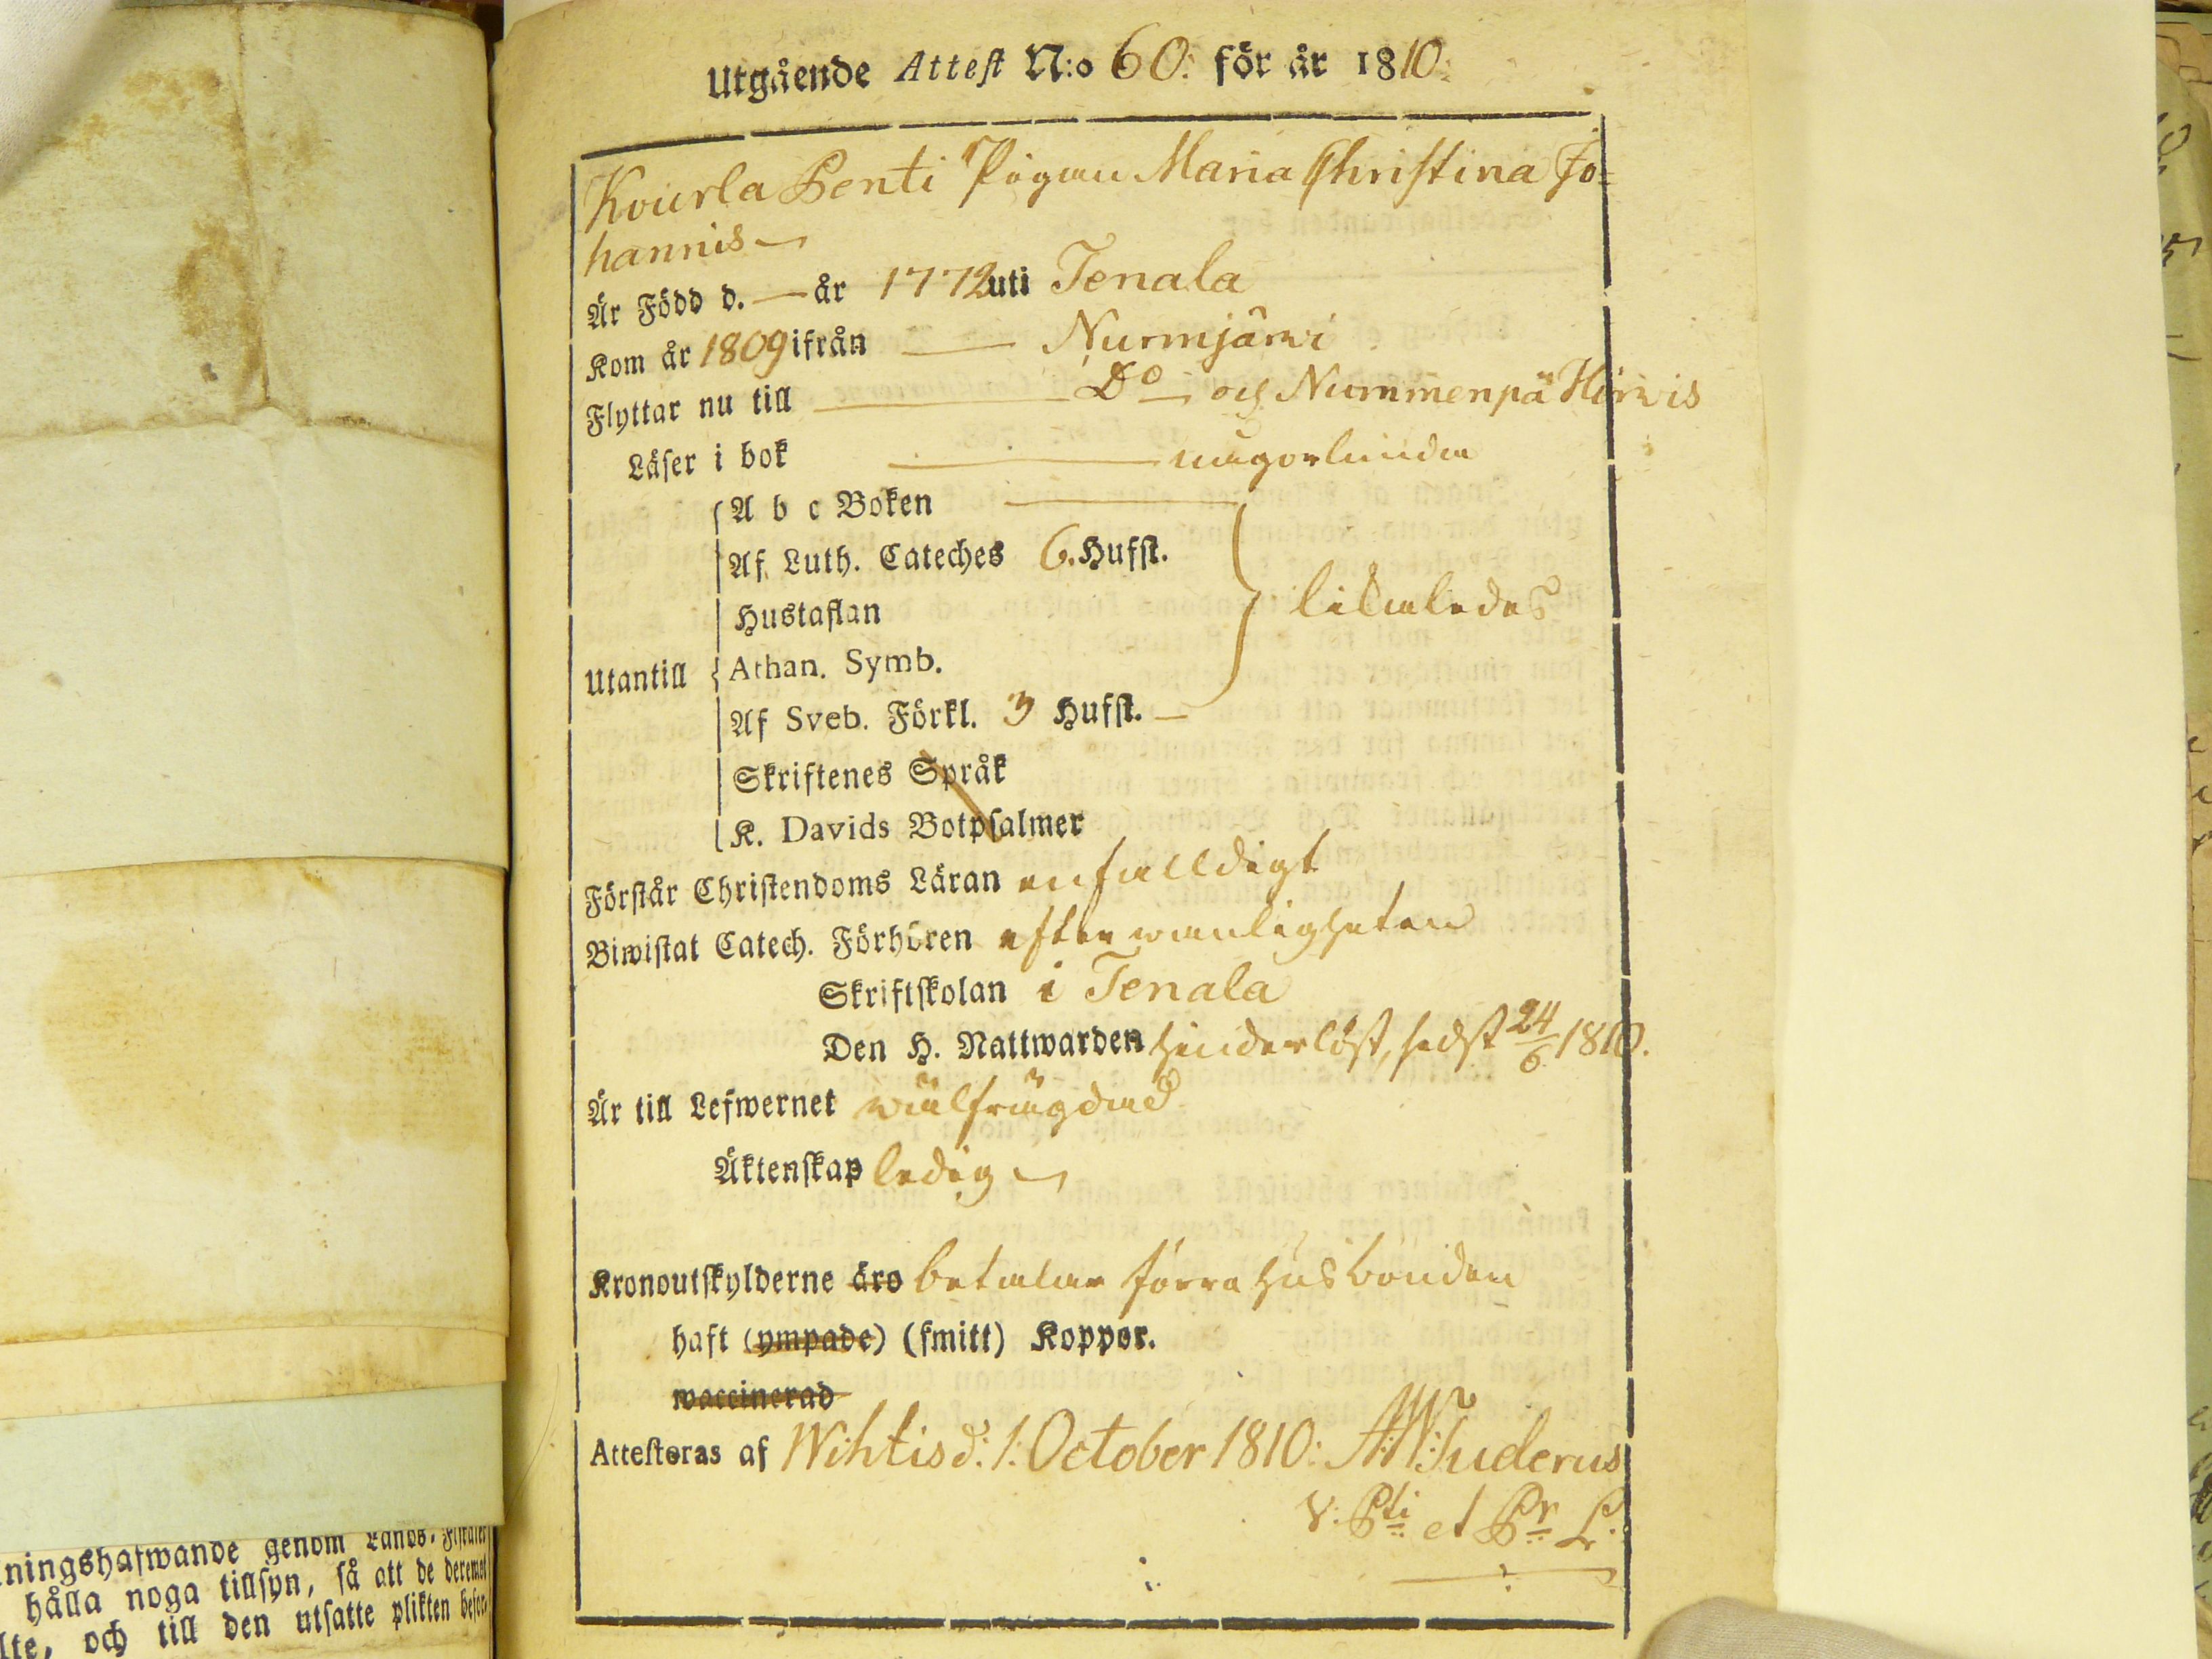 Utgående Attest N:o 60: för år 1810:
Kourla Benti Pigan Maria Christina Jo=
hannis
Är Född d. — år 1772 uti Tenala
Kom år 1809 ifrån — Nurmjärwi
Flyttar nu till — Do — och Nummenpä Hirwis
Läser i bok — någorlunda
A b c Boken —
Af Luth. Cateches 6. Hufst.
Hustaflan
likaledes
Utantill
Athan. Symb.
Af Sveb. Förkl. 3 Hufst. —
Skriftenes Språk
K. Davids Botpsalmer
Förstår Christendoms Läran enfalldigt
Biwistat Catech. Förhören efter wanligheten
Skriftskolan i Tenala
Den H. Nattwarden hinderlöst, sedst 24/6 1810.
Är till Lefwernet wälfrägdad
Äktenskap ledig
Kronoutskylderne äro betalar förra husbonden
haft (ympade) (smitt) Koppor.
waccinerad
Attesteras af Wihtis d: 1: October 1810:
V: Pti et Pr L:
ningshafwande genom Lands-Fiskaler
hålla noga tillsyn, så att de deremot
lte, och till den utsatte plikten befor